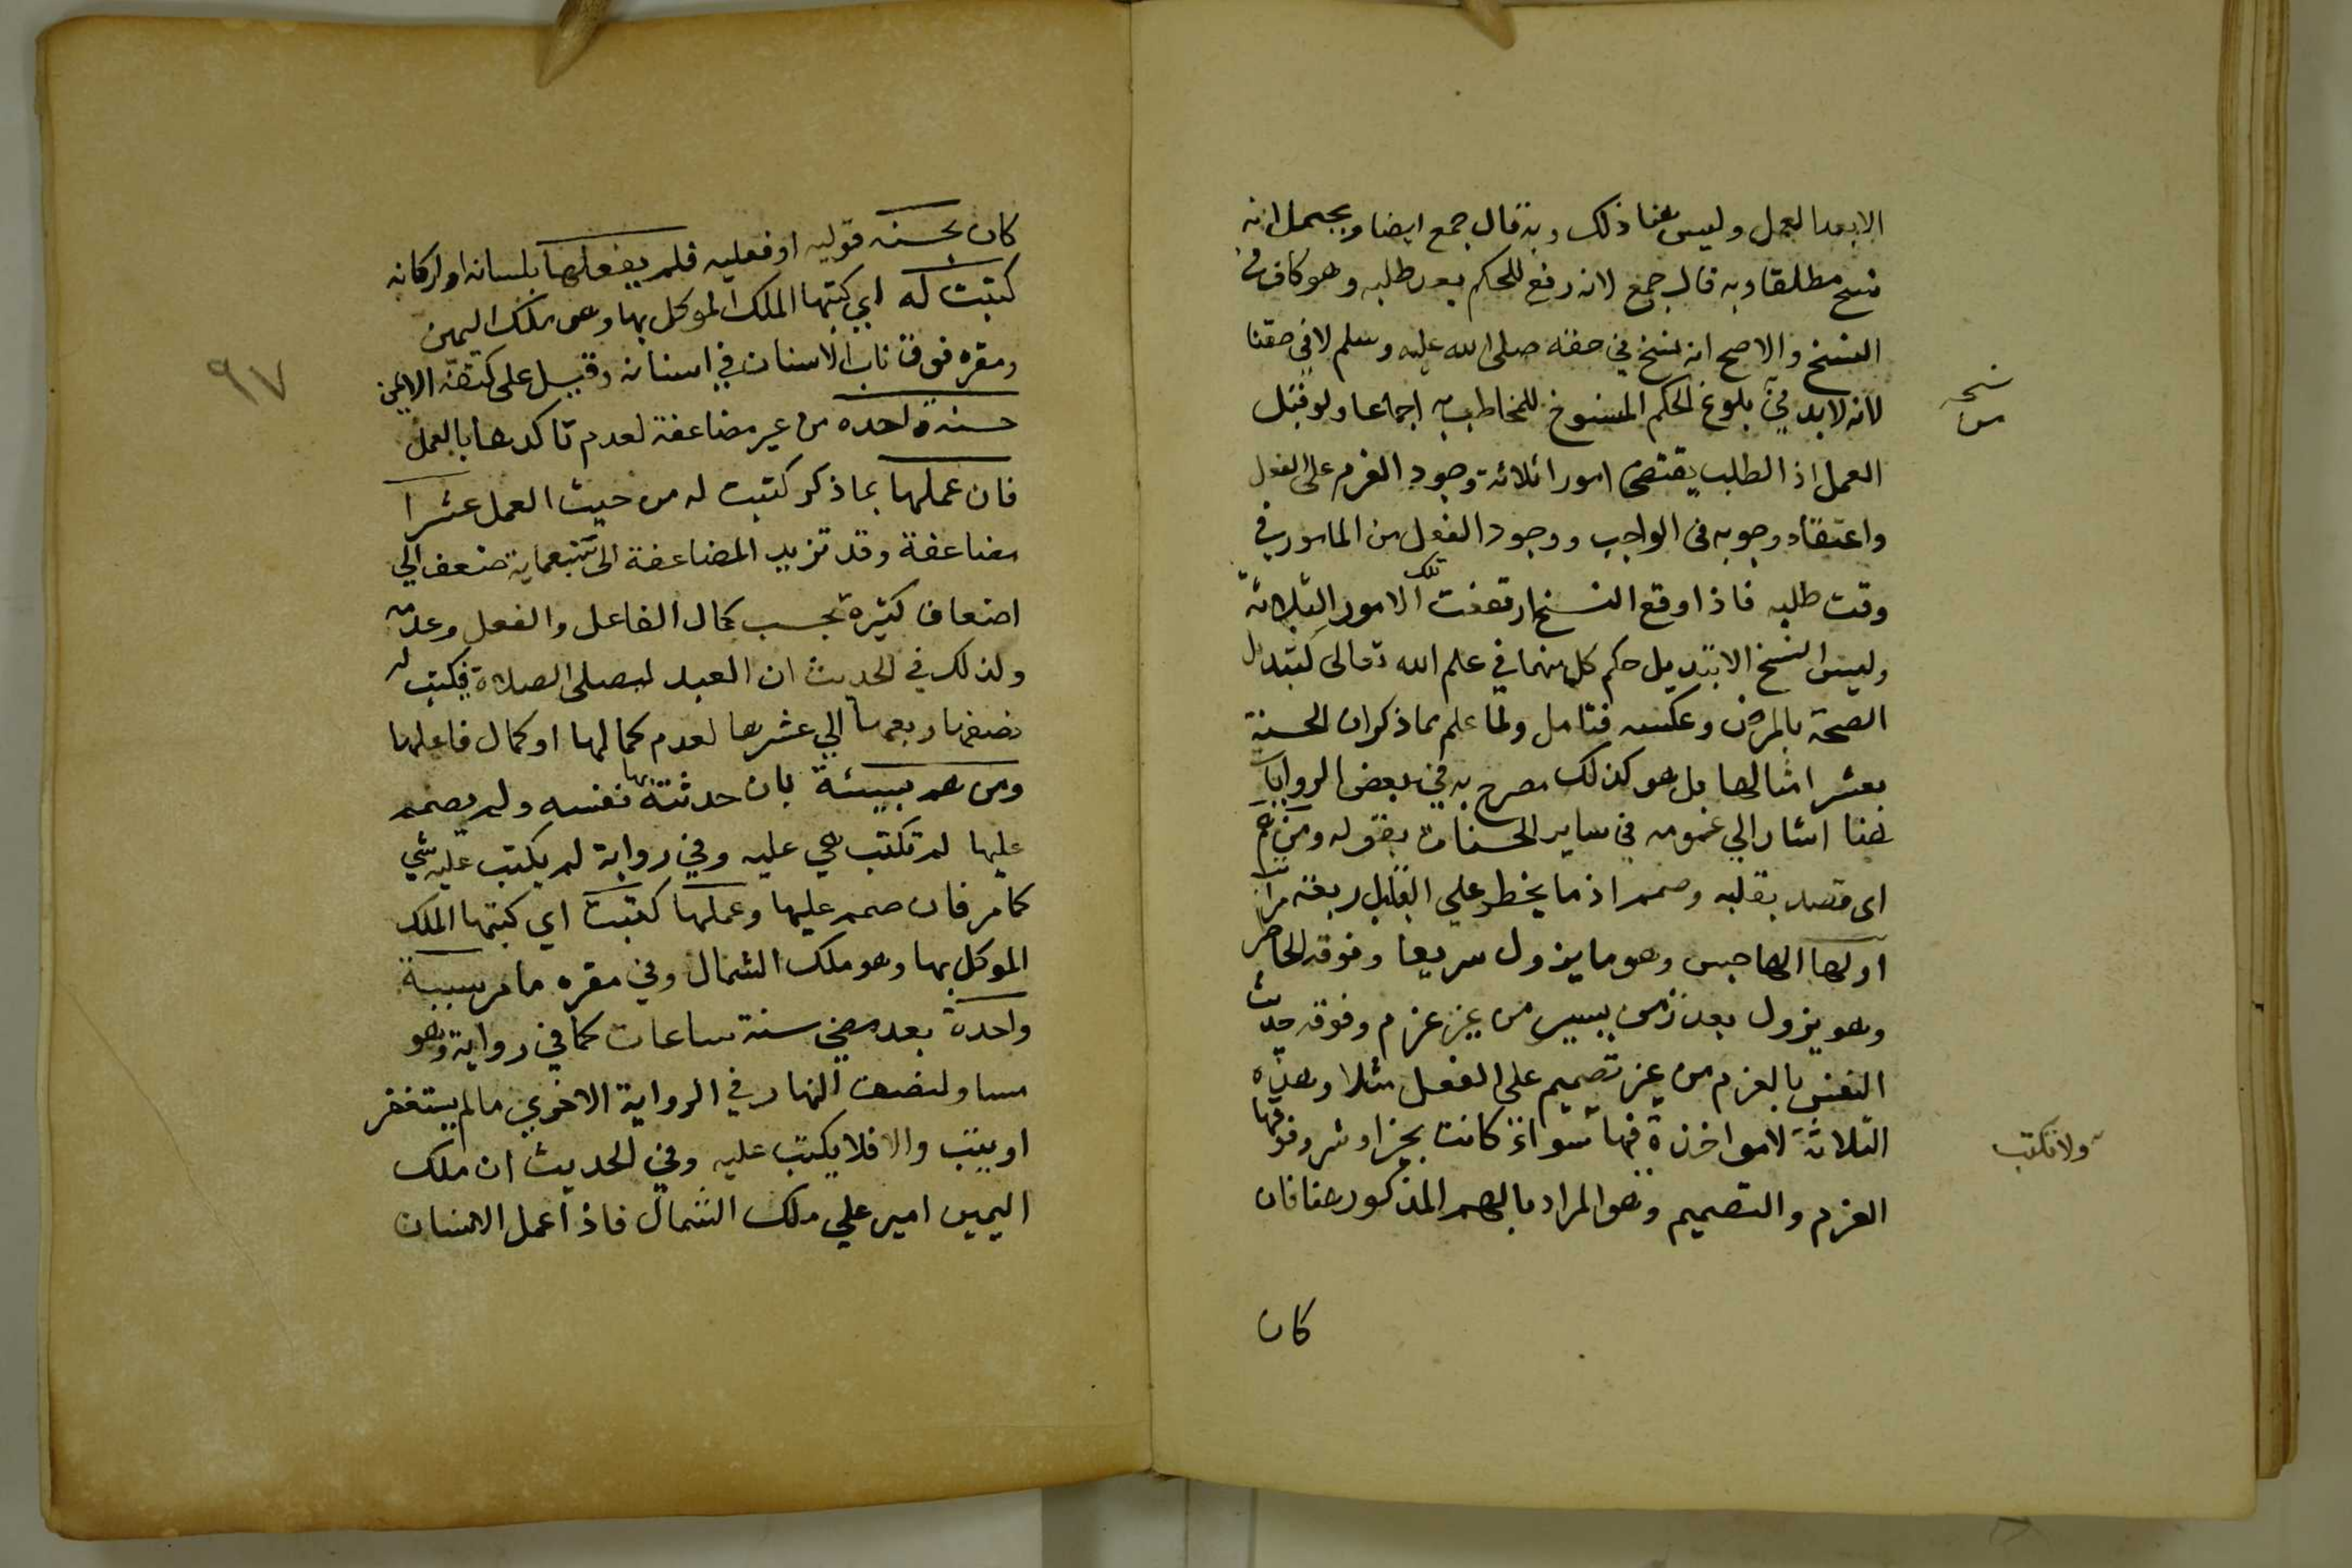 الا بعد العمل وليس هنا ذلك وبه قال جمع ايضا ويحتمل انه
نسخ مطلقا وبه قال جمع لانه رفع للحكم بعد طلبه وهو كاف في
النسخ والاصح انه نسخ في حقه صلى الله عليه وسلم لا في حقنا
لانه لا بد في بلوغ الحكم المنسوخ للمخاطب به اجماعا ولو قبل
نسخه
من
العمل اذ الطلب يقتضى امورا ثلاثة وجود العزم على الفعل
واعتقاد وجوبه فى الواجب ووجود الفعل من المامور في
وقت طلبه فاذا وقع النسخ ارتفعت تلك الامور الثلاثة
وليس النسخ الا تبديل حكم كل منهما في علم الله تعالى كتبدل
الصحة بالمرض وعكسه فتامل ولما علم مما ذكر ان الحسنة
بعشر امثالها بل هو كذلك مصرح به في بعض الروايات
هنا اشار الي عمومه في ساير الحسنات بقوله ومن هم
اى قصد بقلبه وصمم اذ ما يخطر علي القلب اربعة مراتب
اولها الهاجس وهو ما يزول سريعا وفوقه الخاطر
وهو يزول بعد زمن يسير من غير عزم وفوقه حديث
النفس بالعزم من غير تصميم على الفعل مثلا وهذه
الثلاثة لا مواخذة فيها سواء كانت بخير او شر وفوقها
ولا تكتب
العزم والتصميم وهو المراد بالهم المذكور هنا فان
كان
٩٧
كان بحسنه قوليه او فعليه فلم يفعلها بلسانه او اركانه
كتبت له اي كتبها الملك الموكل بها وهو ملك اليمين
ومقره فوق ناب الاسنان في اسنانه وقيل على كتفه الايمن
حسنة واحده من غير مضاعفة لعدم تاكدها بالعمل
فان عملها بما ذكر كتبت له من حيث العمل عشرا
مضاعفة وقد تزيد المضاعفة الى سبعماية ضعف الي
اضعاف كثيرة بحسب كمال الفاعل والفعل وعدمه
ولذلك في الحديث ان العبد ليصلى الصلاة فيكتب له
نصفها ربعها الي عشرها لعدم كمالها او كمال فاعلها
ومن هم بسيئة بان حدثته بها نفسه ولم يصمم
عليها لم تكتب هي عليه وفي رواية لم يكتب عليه شي
كما مر فان صمم عليها وعملها كتبت اي كتبها الملك
الموكل بها وهو ملك الشمال وفي مقره ما مر سيئة
واحدة بعد مضي ستة ساعات كما في رواية وهو
مساو لنصف النهار في الرواية الاخري ما لم يستغفر
او يتب والا فلا يكتب عليه وفي الحديث ان ملك
اليمين امير علي ملك الشمال فاذا عمل الانسان